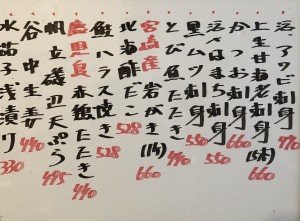 活アワビ刺身 770
上生甘海老刺身 (5本) 660
かつお刺身 660
活〆はまち刺身 550
黒ムツ刺身 550
とび魚たたき 440
宮崎産 岩がき (1ケ) 660
北海酢だこ 528
鮭ハラス焼き 528
鹿児島 赤鶏たたき 440
帆立磯辺天ぷら 495
谷中生姜 440
水茄子浅漬り 330